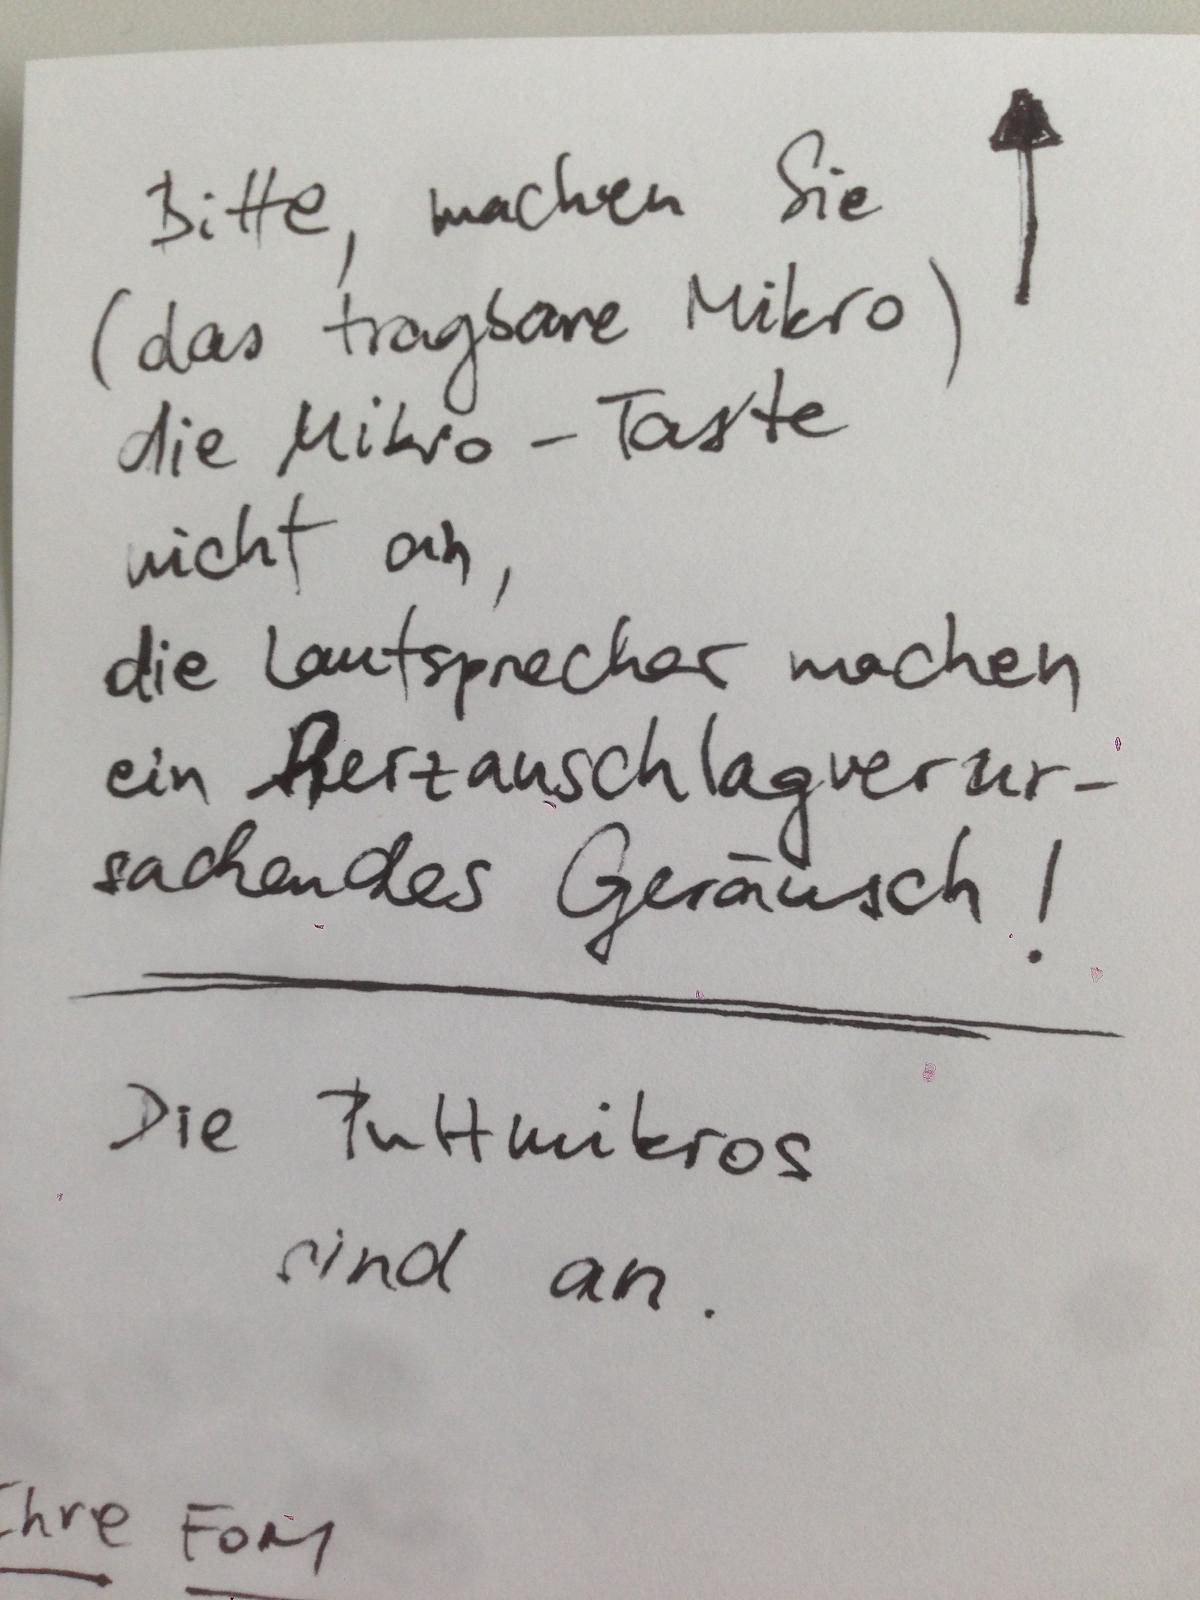 Bitte, machen Sie
(das tragbare Mikro)
die Mikro-Taste
nicht an,
die Lautsprecher machen
ein Herzanschlagverur-
sachendes Geräusch!
Die Pultmikros
sind an.
Ihre FOM